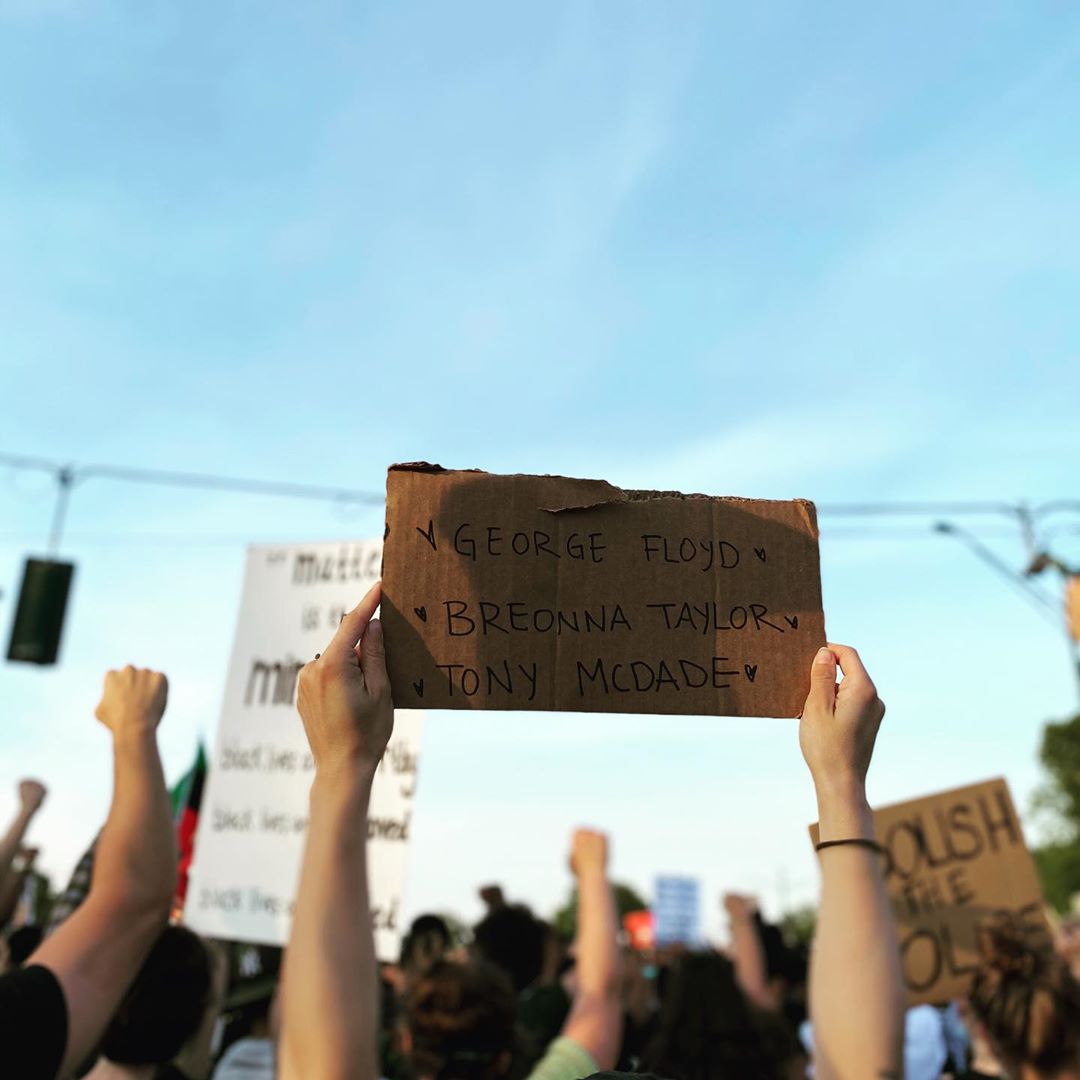 GEORGE FLOYD
BREONNA TAYLOR
TONY MCDADE
matter
is the
black lives
black lives
black lives
ABOLISH
THE
POLICE